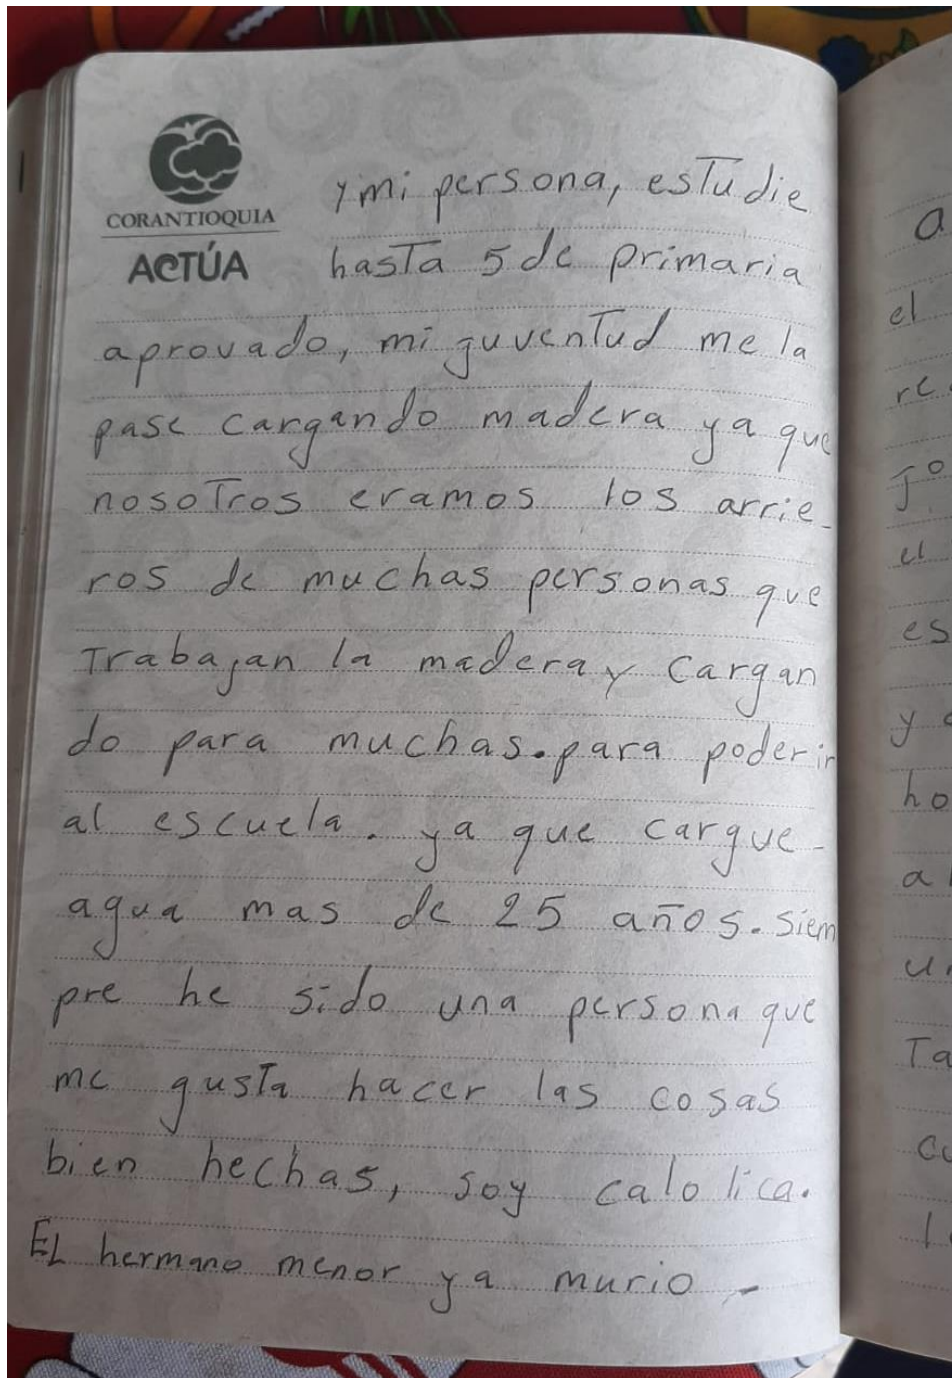 CORANTIOQUIA
ACTÚA
y mi persona, estudie
hasta 5 de primaria
aprovado, mi guventud me la
pase cargando madera ya que
nosotros eramos los arrie-
ros de muchas personas que
Trabajan la madera y cargan
do para muchas. para poder ir
al escuela. ya que cargue-
agua mas de 25 años. siem
pre he sido una persona que
me gusta hacer las cosas
bien hechas, soy calolica.
EL hermano menor ya murio -
a
el
re
jo
el
es
y
ho
a
u
Ta
co